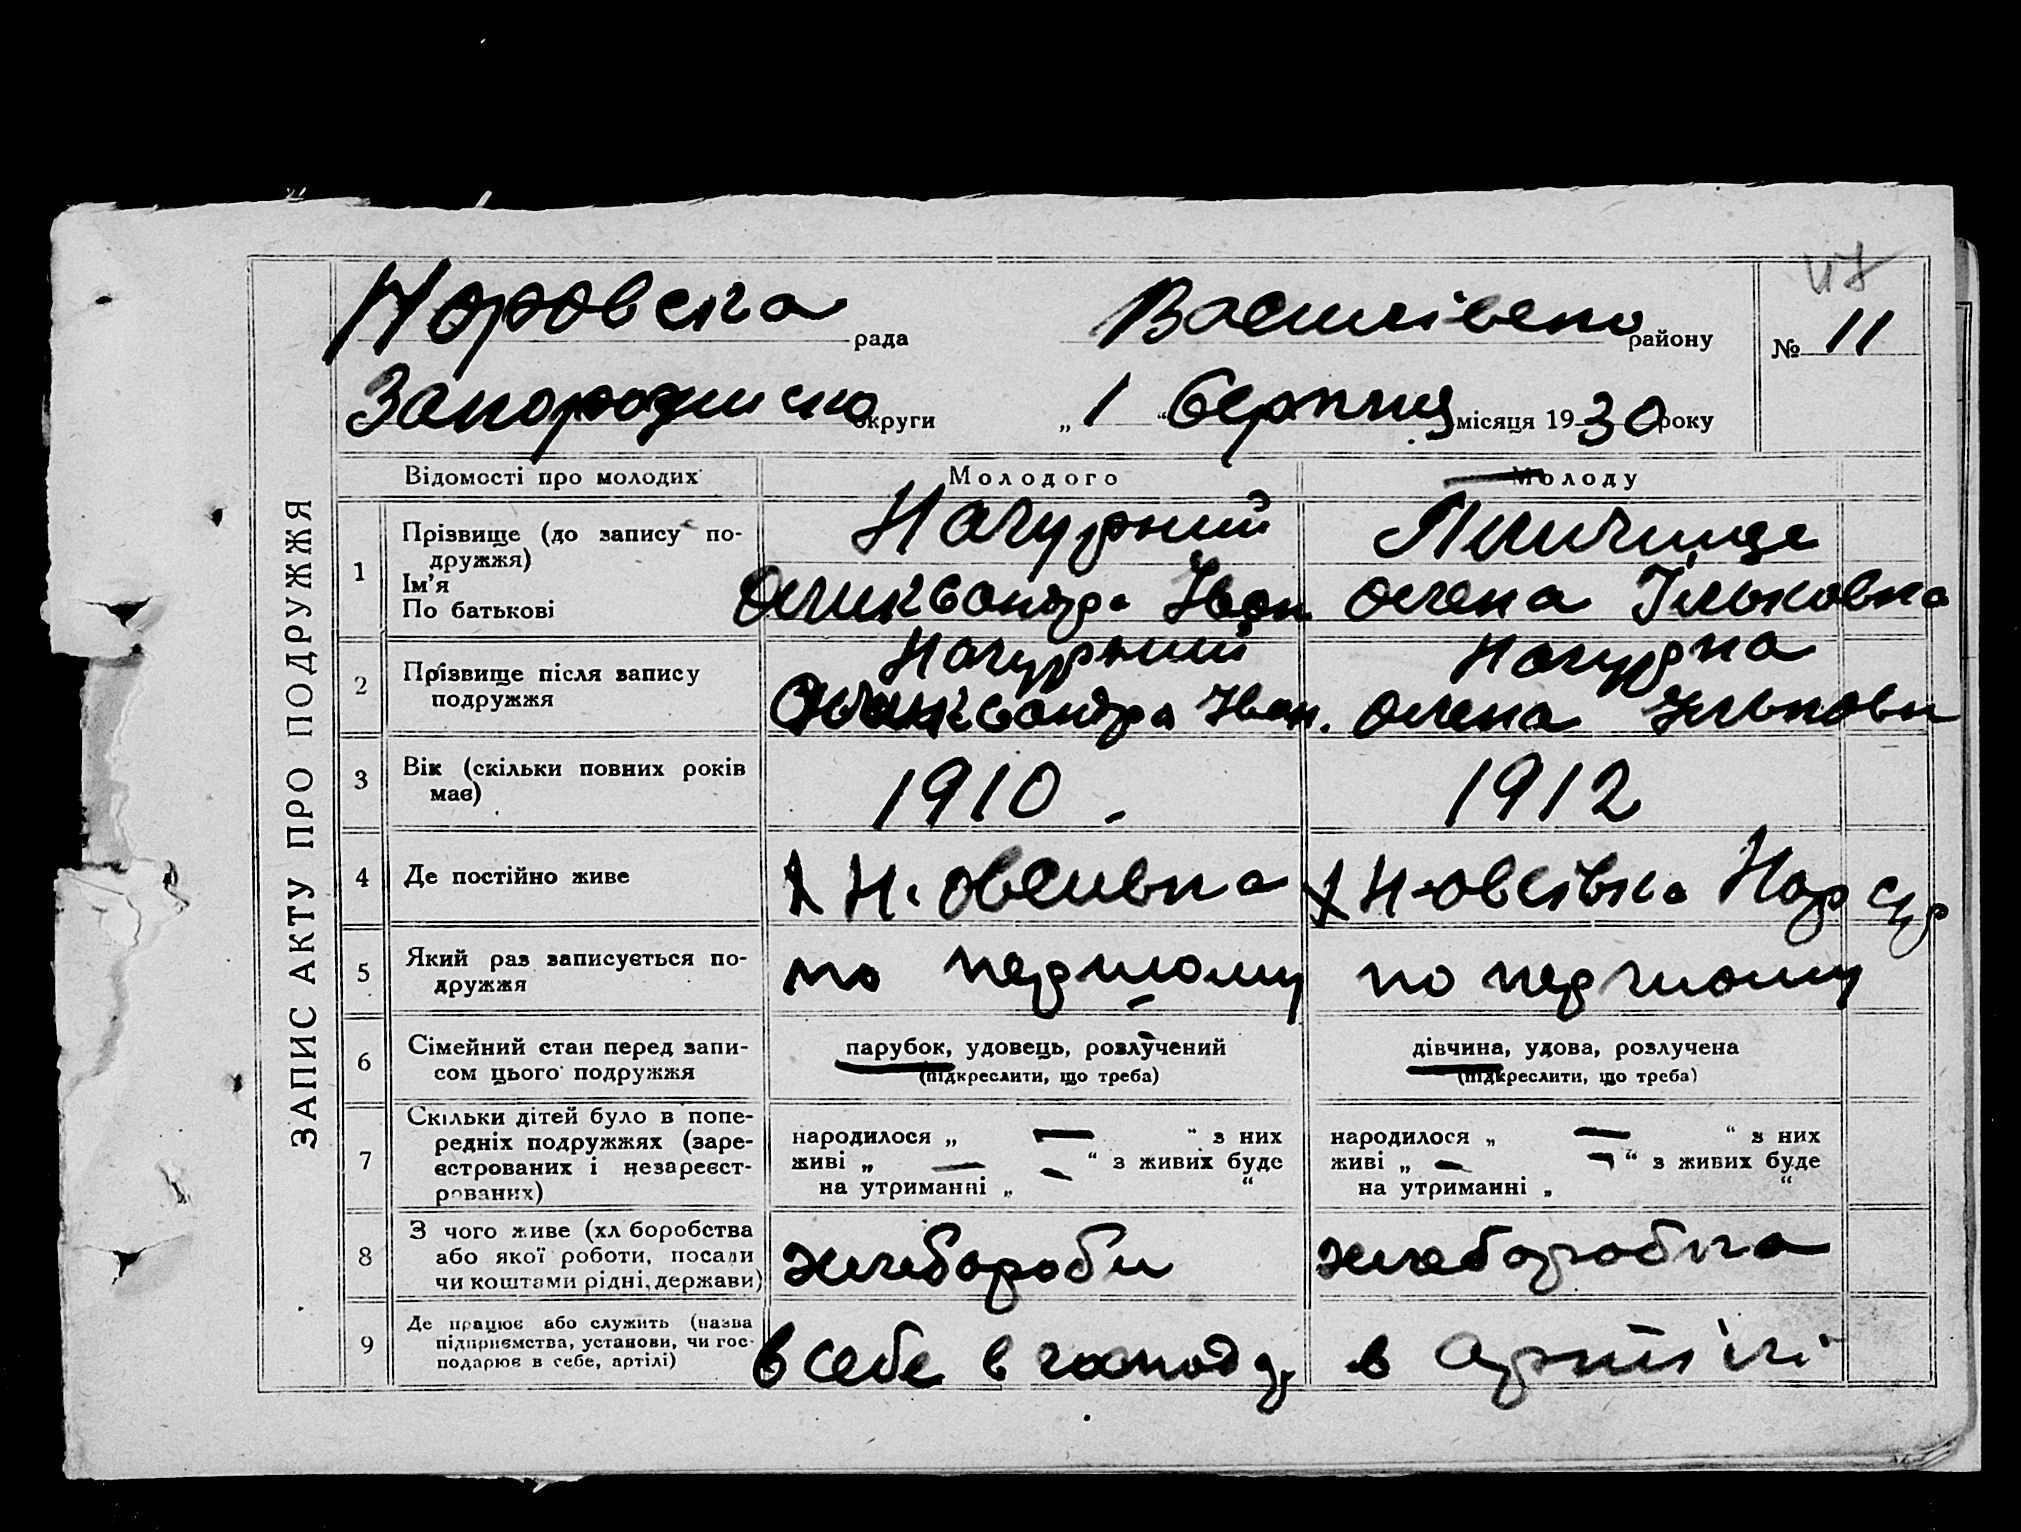 47
Наровска рада Василівско району № 11
округи „ 1 “ Серпня місяця 1930 року
ЗАПИС АКТУ ПРО ПОДРУЖЖЯ
Відомості про молодих Молодого Молоду
1 Прізвище (до запису по-
дружжя)
Ім'я
По батькові
Нагурний
Іван
Олена Ільковна
2 Прізвище після запису
подружжя
Нагурний
Іван.
Нагурна
Олена
3 Вік (скільки повних років
має)
1910. 1912
4 Де постійно живе
Х Н. Овсивка Х Н-овсівка
5 Який раз записується по-
дружжя
по першому по першому
6 Сімейний стан перед запи-
сом цього подружжя
парубок, удовець, розлучений дівчина, удова, розлучена
(підкреслити, що треба) (підкреслити, що треба)
7 Скільки дітей було в попе-
редніх подружжях (заре-
єстрованих і незареєст-
рованих)
народилося „ — “ з них
живі „ — — “ з живих буде
на утриманні „ “
народилося „ — “ з них
живі „ — — “ з живих буде
на утриманні „ “
8 З чого живе (хліборобства
або якої роботи, посади
чи коштами рідні, держави)
хлебороби хлеборобка
9 Де працює або служить (назва
підприємства, установи, чи гос-
подарює в себе, артілі)
в себе в в артілі